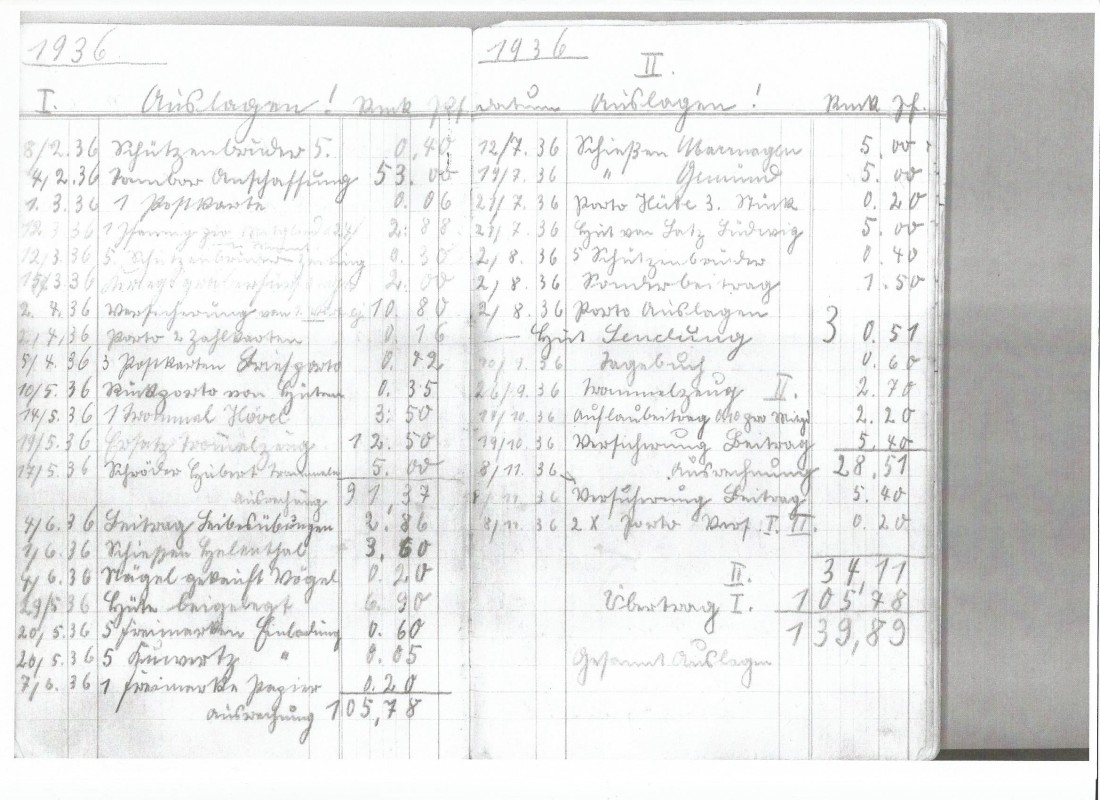 1936
I. Auslagen! Rmk Pf.
8/2.36 Schützenbrüder 5. 0.40
4/2.36 Tambor Anschaffung 53.00
1.3.36 1 Postkarte 0.06
1 2.88
12/3.36 5. Schützenbrüder Zeitung 0.30
15/3.36 2.00
2.4.36 Versicherung 10.80
Porto 2 Zahlkarten 0.16
5/4.36 3 Postkarten Briefporto 0.42
10/5.36 Rückporto von Hüten 0.35
14/5.36 1 Trommel 3.50
19/5.36 Ersatz Trommelzeug 12.50
17/5.36 Schröder Hubert Trommeln 5.00
Ausrechnung 91,37
4/6.36 Beitrag Leibesübungen 2.86
1/6.36 Schiessen Helenthal 3.60
4/6.36 Nägel gekauft Vögel 0.20
29/5.36 Hüte beigelegt 6.90
20/5.36 5 Freimarken Einladung 0.60
20/5.36 5 Kuwertz " 0.05
7/6.36 1 Freimarke Papier 0.20
Ausrechnung 105,78
1936
II.
Datum Auslagen! Rmk Pf.
12/7.36 Schießen 5.00
19/7.36 " Gemünd 5.00
27/7.36 Porto Hüte 3. Stück 0.20
27/7.36 Hut von Latz Ludwig 5.00
2/8.36 5 Schützenbrüder 0.40
2/8.36 Sonderbeitrag 1.50
2/8.36 Porto Auslagen
Hut Sendung 3 0.51
10/9.36 Tagebuch 0.60
26/9.36 Trommelzeug II. 2.70
19/10.36 0.10 pro Mitgl 2.20
19/10.36 Versicherung Beitrag 5.40
8/11.36 Ausrechnung 28,51
8/11.36 Versicherung Beitrag 5.40
8/11.36 2 X Porto Vers. I. II. 0.20
II. 34,11
Übertrag I. 105,78
139,89
Gesamt Auslagen